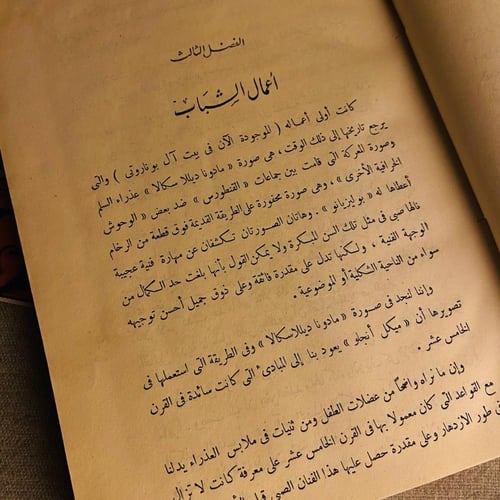 الفصل الثالث
أعمال الشباب
كانت أولى أعماله ( الموجودة الآن فى بيت آل بوناروتى ) والتى
يرجع تاريخها إلى ذلك الوقت ، هى صورة « مادونا ديللا سكالا » عذراء السلم
وصورة المعركة التى قامت بين جماعات « القنطورس » ضد بعض « الوحوش
الخرافية الأخرى » ، وهى صورة محفورة على الطريقة القديمة فوق قطعة من الرخام
أعطاها له « بوليزيانو » . وهاتان الصورتان تكشفان عن مهارة فنية عجيبة
نالها صبى فى مثل تلك السن المبكرة ولا يمكن القول بأنها بلغت حد الكمال من
الوجهة الفنية ، ولكنها تدل على مقدرة فائقة وعلى ذوق جميل أحسن توجيهه
سواء من الناحية الشكلية أو الموضوعية .
وإننا لنجد فى صورة « مادونا ديللاسكالا » وفى الطريقة التى استعملها فى
تصويرها أن « ميكل أنجلو » يعود بنا إلى المبادئ التى كانت سائدة فى القرن
الخامس عشر .
وإن ما نراه واضحاً من عضلات الطفل ومن ثنيات فى ملابس العذراء يدلنا
مع القواعد التى كان معمولا بها فى القرن الخامس عشر على معرفة كانت لا تزال
فى طور الازدهار وعلى مقدرة حصل عليها هذا الفنان الصبى